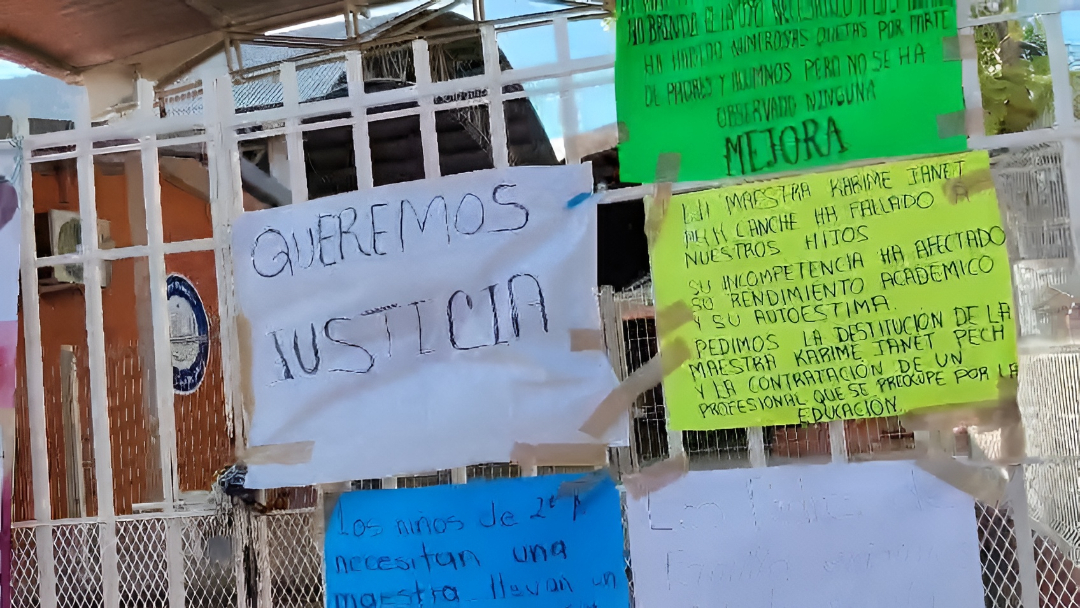 NO BRINDO EL APOYO NECESARIO A LOS
HA HABIDO NUMEROSAS QUEJAS POR PARTE
DE PADRES Y ALUMNOS PERO NO SE HA
OBSERVADO NINGUNA
MEJORA
QUEREMOS
JUSTICIA
MAESTRA KARIME JANET
CANCHE HA FALLADO A
NUESTROS HIJOS
SU INCOMPETENCIA HA AFECTADO
SU RENDIMIENTO ACADEMICO
Y SU AUTOESTIMA.
PEDIMOS LA DESTITUCIÓN DE LA
MAESTRA KARIME JANET PECH
Y LA CONTRATACIÓN DE UN
PROFESIONAL QUE SE PREOCUPE POR LA
EDUCACIÓN.
Los niños de 2º A
necesitan una
maestra llevan un